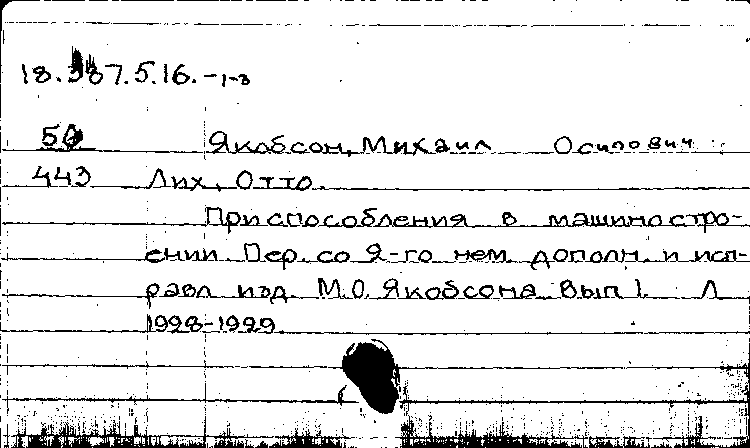 18.387.5.16.-1-3
56 Якобсон, Михаил Осипович
443 Лих, Отто.
Приспособления в машиностро-
ении. Пер. со 2-го нем. дополн. и исп-
равл изд. М.О. Якобсона. Вып 1. Л
1928-1929.